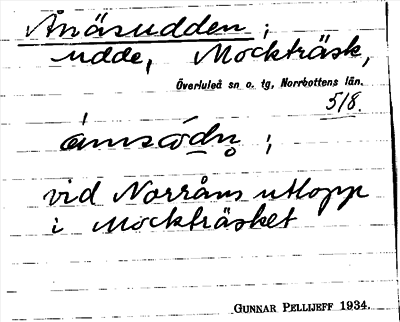 Ånäsudden ;
udde, Mockträsk,
Överluleå sn o. tg, Norrbottens län.
5/8.
vid Norråns utlopp
i Mockträsket
GUNNAR PELLIJEFF 1934.